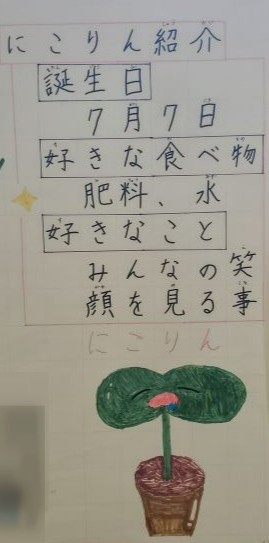 にこりん紹介
誕生日
7月7日
好きな食べ物
肥料、水
好きなこと
みんなの笑
顔を見る事
にこりん